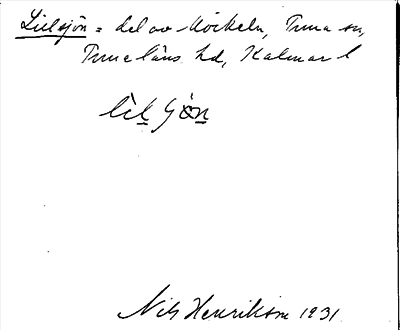 Lillsjön = del av Möckeln, Tuna sn,
Tunaläns hd, Kalmar l
Nils Henriksson 1931